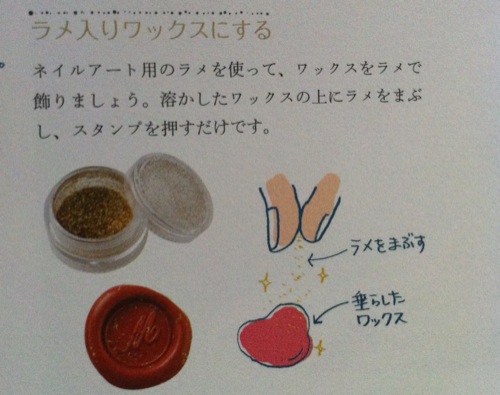 ラメ入りワックスにする
ネイルアート用のラメを使って、ワックスをラメで
飾りましょう。溶かしたワックスの上にラメをまぶ
し、スタンプを押すだけです。
ラメをまぶす
垂らした
ワックス